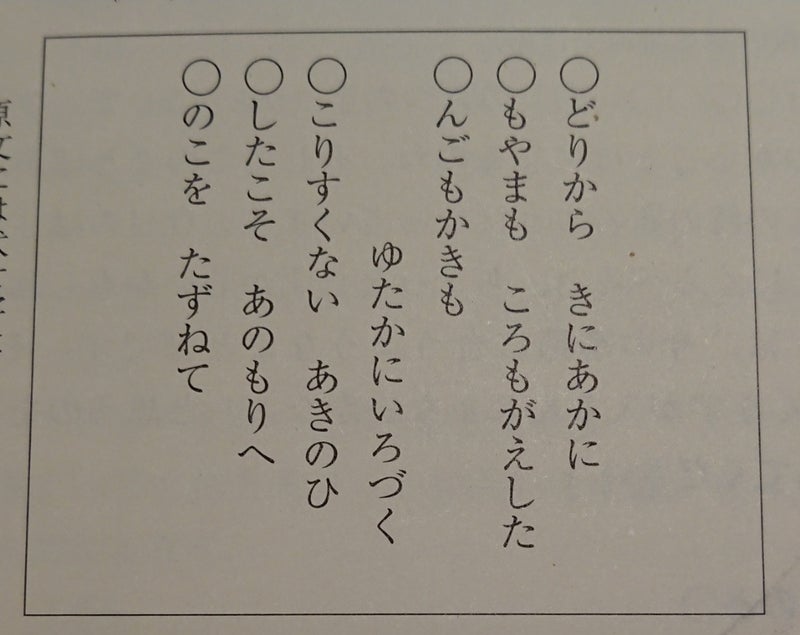 ○どりから　きにあかに
○もやまも　ころもがえした
○んごもかきも
ゆたかにいろづく
○こりすくない　あきのひ
○したこそ　あのもりへ
○のこを　たずねて